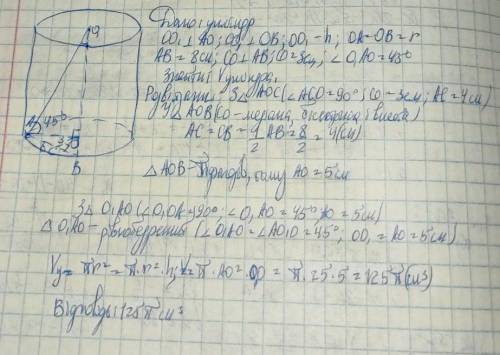 Дано: циліндр
OO₁ ⊥ AO; OO₁ ⊥ OB; OO₁ - h; OA=OB=r
AB = 8см; CO ⊥ AB; CO=3см; ∠O₁AO=45°
V циліндра
З △ AOC (∠ACO=90°; CO=3см; AC=4см)
У △ AOB (CO - медіана, бісектриса і висота)
AC = CB = 1/2 AB = 8/2 = 4(см)
△ AOB - тому AO = 5см
З △ O₁AO (∠O₁OA=90°; ∠O₁AO=45° AO=5см)
△ O₁AO - рівнобедрений (∠O₁AO=∠AO₁O=45°, OO₁=AO=5см)
Vц = πr² = π·r²·h; V=π·AO²·OO₁ = π·25·5 = 125π(см³)
Відповідь: 125π см³
O
A 45°
3
B